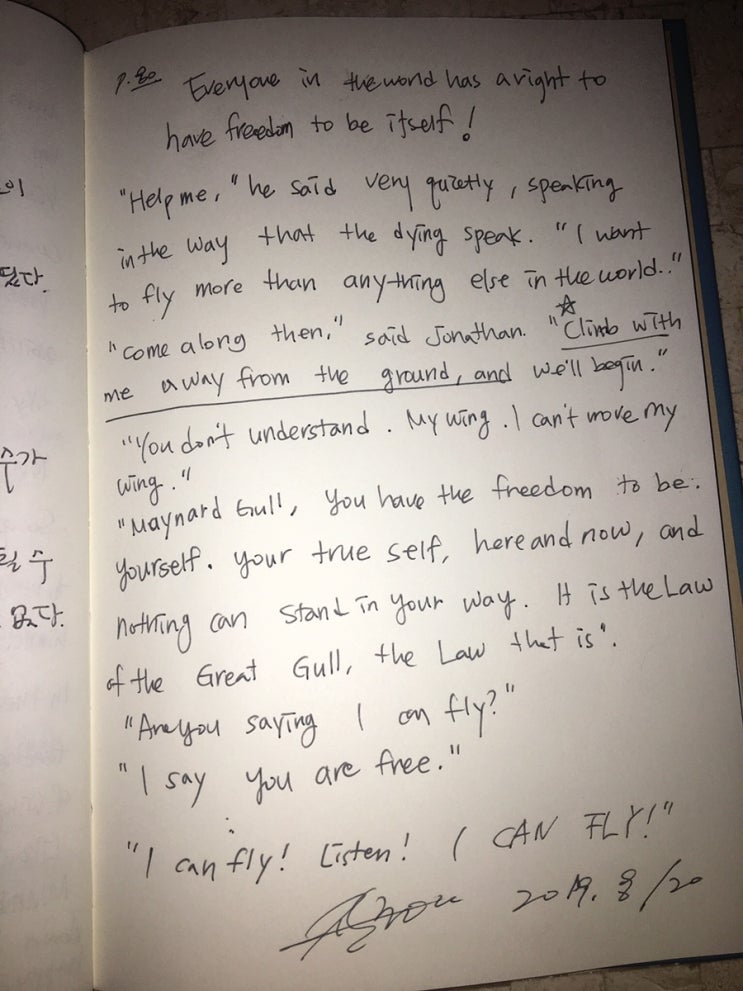 이
P. 80 Everyone in the world has a right to
have freedom to be itself!
"Help me," he said very quietly, speaking
in the way that the dying speak. "I want
to fly more than anything else in the world.."
"come along then," said Jonathan. "Climb with
me away from the ground, and we'll begin."
"You don't understand. My wing. I can't move my
wing."
"Maynard Gull, you have the freedom to be.
yourself. your true self, here and now, and
nothing can stand in your way. It is the Law
of the Great Gull, the Law that is".
"Are you saying I can fly?"
"I say you are free."
"I can fly! Listen! I CAN FLY!"
2019. 8/20